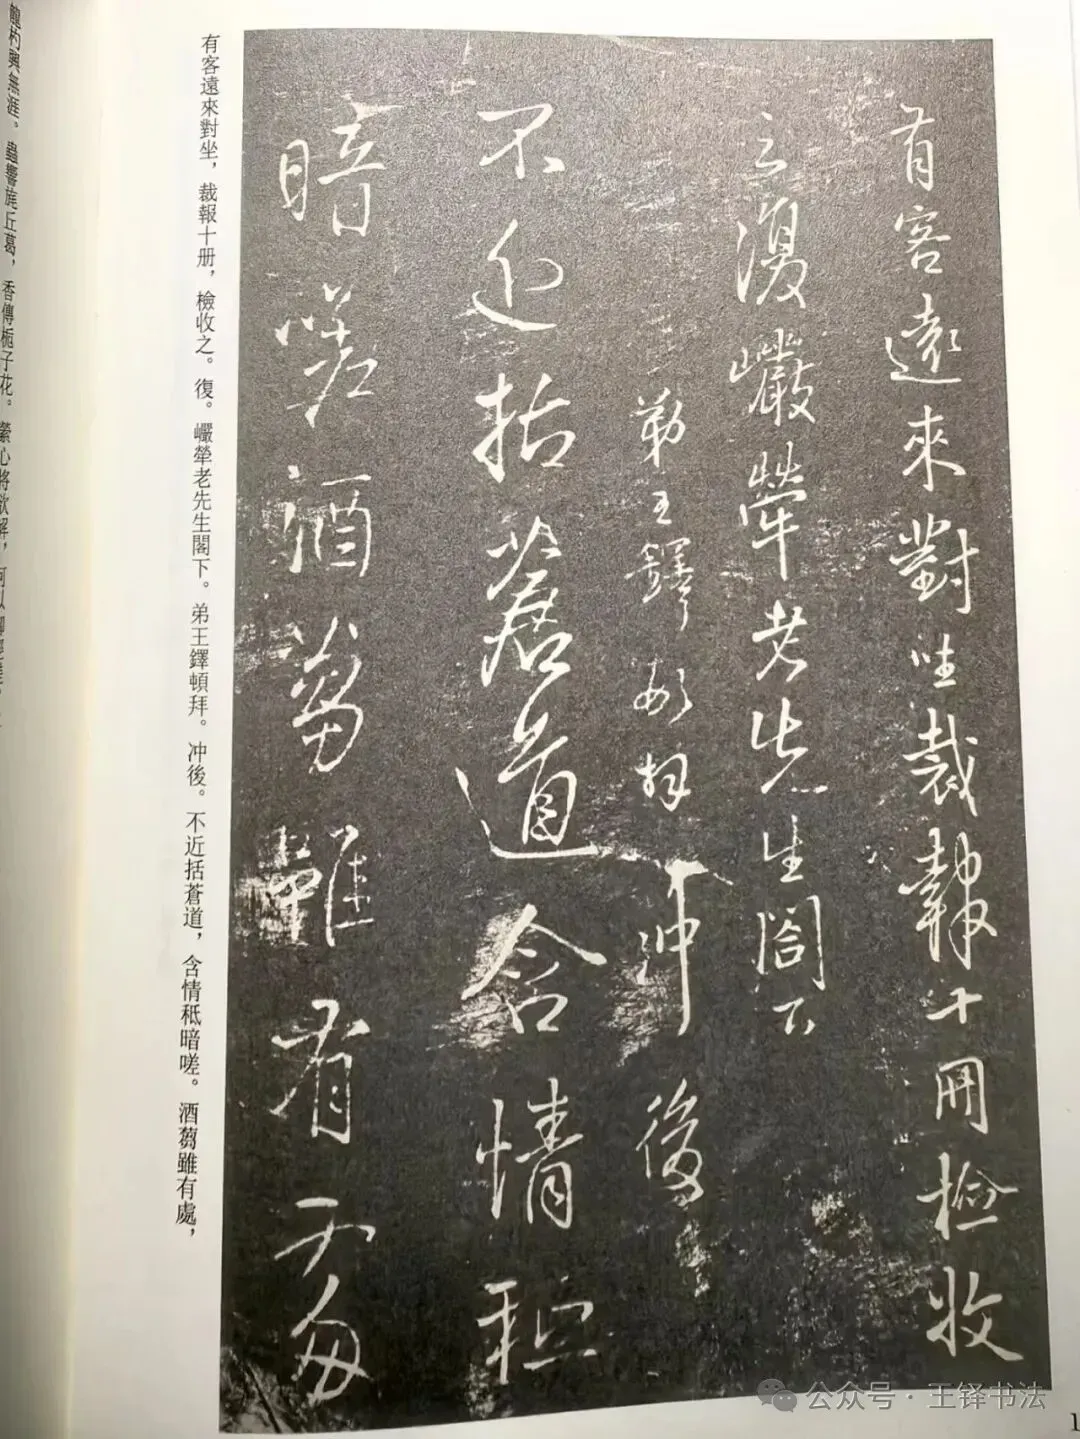 有客遠來對坐裁報十冊檢收
之復巘犖老先生閣下
弟王鐸頓拜冲後
不近括蒼道含情秪
暗嗟酒蒭雖有處
有客遠來對坐，裁報十册，檢收之。復。巘犖老先生閣下。弟王鐸頓拜。冲後。不近括蒼道，含情秪暗嗟。酒蒭雖有處，
龍杓興無涯。蟲響旄丘葛，香傳梔子花。縈心將欲解，
公众号·王铎书法
1